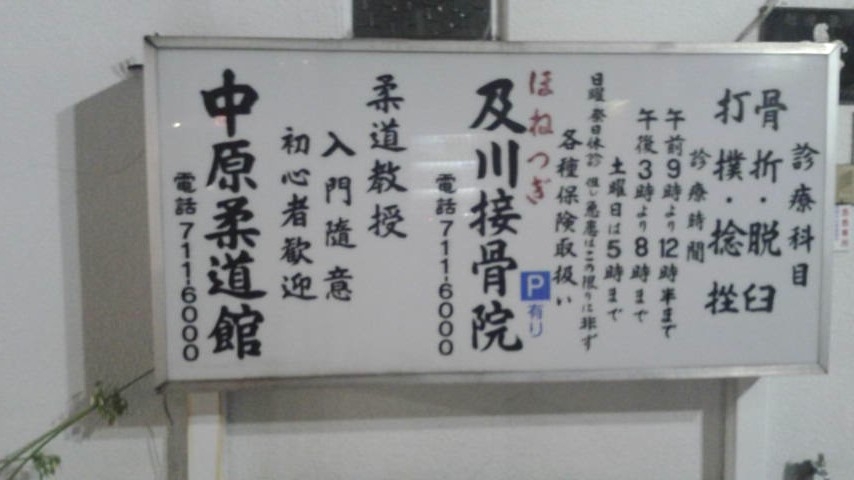 診療科目
骨折・脱臼
打撲・捻挫
診療時間
午前9時より12時半まで
午後3時より8時まで
土曜日は5時まで
日曜祭日休診 但し急患はこの限りに非ず
各種保険取扱い
ほねつぎ
P有り
及川接骨院
電話711-6000
柔道教授
入門随意
初心者歓迎
中原柔道館
電話711-6000